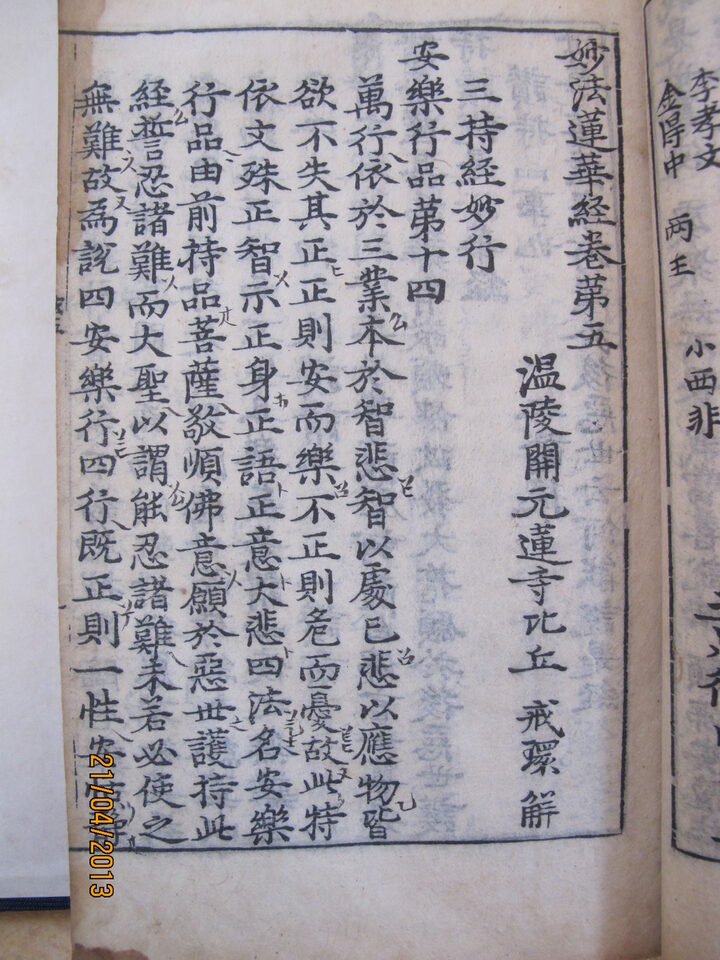 李孝文
金得中 両主
小西非
妙法蓮華經卷第五
温陵開元蓮寺比丘 戒環 解
三持經妙行
安樂行品第十四
萬行依於三業本於智悲智以處已悲以應物皆
欲不失其正正則安而樂不正則危而憂故此特
依文殊正智示正身正語正意大悲四法名安樂
行品由前持品菩薩敬順佛意願於惡世護持此
經誓忍諸難而大聖以謂能忍諸難未若必使之
無難故為說四安樂行四行既正則一性安
21/04/2013